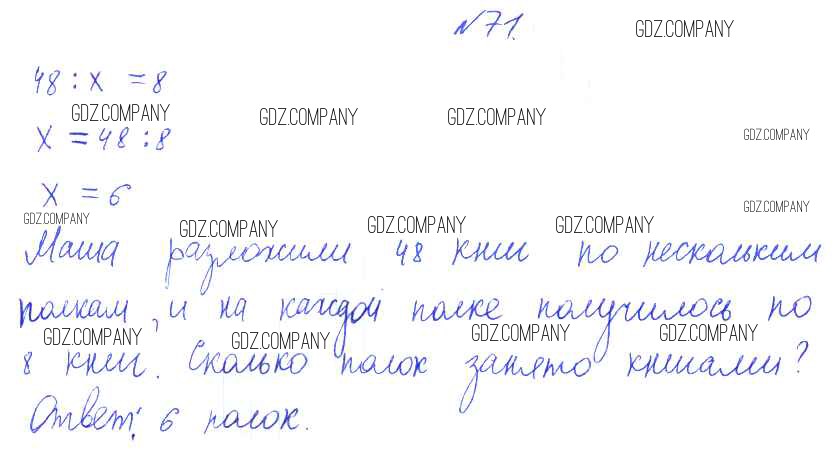 №71.
GDZ.COMPANY
48 : x = 8
GDZ.COMPANY GDZ.COMPANY GDZ.COMPANY
x = 48 : 8
GDZ.COMPANY
x = 6
GDZ.COMPANY
GDZ.COMPANY GDZ.COMPANY GDZ.COMPANY GDZ.COMPANY
Маша разложили 48 книг по нескольким
полкам, и на каждой полке получилось по
GDZ.COMPANY GDZ.COMPANY GDZ.COMPANY GDZ.COMPANY
8 книг. Сколько полок занято книгами?
Ответ: 6 полок.